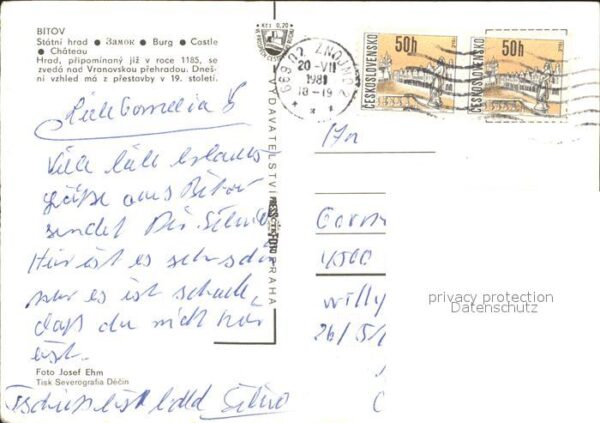 BITOV
Státní hrad ● Замок ● Burg ● Castle
● Château
Hrad, připomínaný již v roce 1185, se
zvedá nad Vranovskou přehradou. Dneš-
ní vzhled má z přestavby v 19. století.
Kčs 0,20
669 02 ZNOJMO 2
20-VII
1981
18-19
50h
ČESKOSLOVENSKO
50h
ČESKOSLOVENSKO
VYDAVATELSTVÍ PRESSFOTO PRAHA
Liebe Cornelia
Viele liebe Urlaubs
grüße aus Bitov
sendet Dir Silvia
Hier ist es sehr schön
nur es ist schade,
daß du nicht hier
bist.
Foto Josef Ehm
Tisk Severografia Děčín
Tschüss bist bald Silvia
Corn
willy
26/5/1
privacy protection
Datenschutz